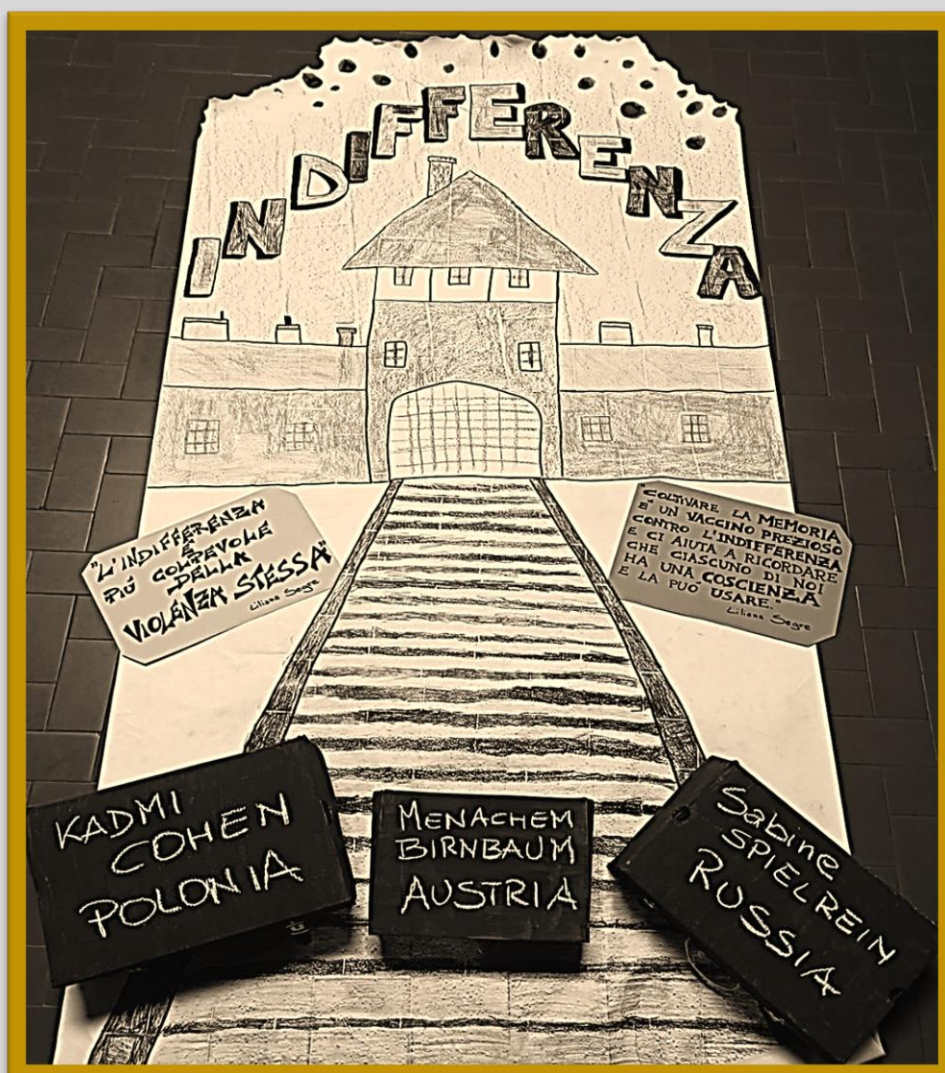 INDIFFERENZA
"L'INDIFFERENZA
È
PIÚ COLPEVOLE
DELLA
VIOLENZA STESSA"
Liliana Segre
COLTIVARE LA MEMORIA
E' UN VACCINO PREZIOSO
CONTRO L'INDIFFERENZA
E CI AIUTA A RICORDARE
CHE CIASCUNO DI NOI
HA UNA COSCIENZA
E LA PUÓ USARE."
Liliana Segre
KADMI
COHEN
POLONIA
MENACHEM
BIRNBAUM
AUSTRIA
Sabine
SPIELREIN
RUSSIA